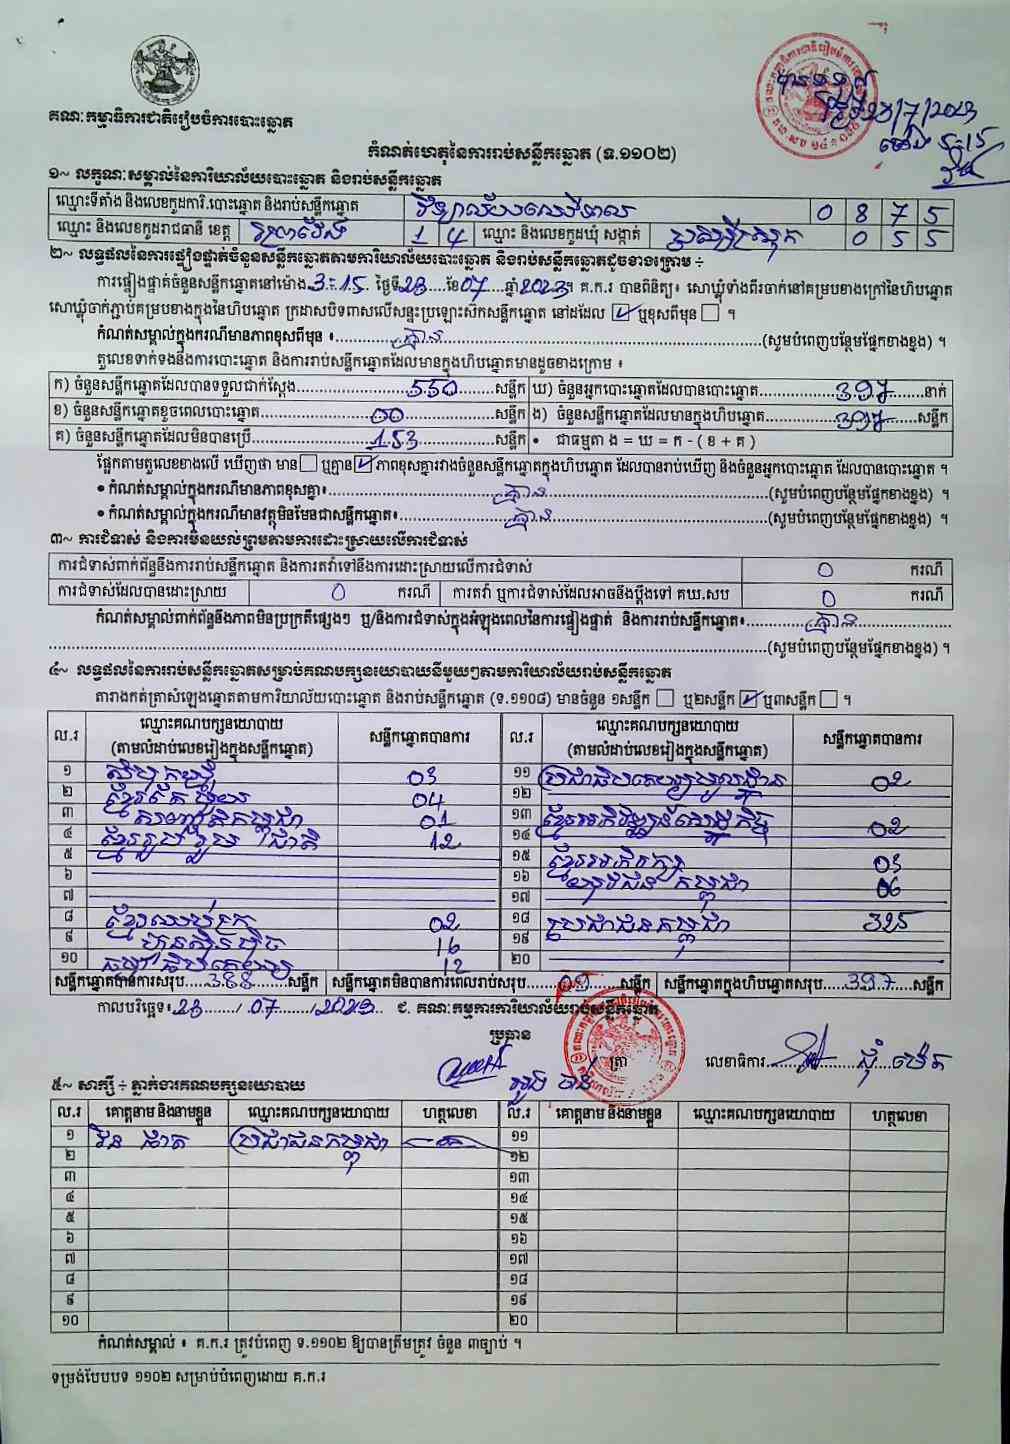 គណៈកម្មាធិការជាតិរៀបចំការបោះឆ្នោត
កំណត់ហេតុនៃការរាប់សន្លឹកឆ្នោត (ទ.១១០២)
១~ លក្ខណៈសម្គាល់នៃការិយាល័យបោះឆ្នោត និងរាប់សន្លឹកឆ្នោត
ឈ្មោះទីតាំង និងលេខកូដការិ.បោះឆ្នោត និងរាប់សន្លឹកឆ្នោត 0 8 7 5
ឈ្មោះ និងលេខកូដរាជធានី ខេត្ត ព្រៃវែង 1 4 ឈ្មោះ និងលេខកូដឃុំ សង្កាត់ 0 5 5
២~ លទ្ធផលនៃការផ្ទៀងផ្ទាត់ចំនួនសន្លឹកឆ្នោតតាមការិយាល័យបោះឆ្នោត និងរាប់សន្លឹកឆ្នោតដូចខាងក្រោម ÷
ការផ្ទៀងផ្ទាត់ចំនួនសន្លឹកឆ្នោតនៅម៉ោង 3:15 ថ្ងៃទី 23 ខែ 07 ឆ្នាំ 2023។ គ.ក.រ បានពិនិត្យ៖ សោឃ្លុំទាំងពីរចាក់នៅគម្របខាងក្រៅនៃហិបឆ្នោត
សោឃ្លុំចាក់ភ្ជាប់គម្របខាងក្នុងនៃហិបឆ្នោត ក្រដាសបិទពាសលើសន្ទះប្រឡោះស៊កសន្លឹកឆ្នោត នៅដដែល ☑ ឬខុសពីមុន ☐ ។
កំណត់សម្គាល់ក្នុងករណីមានភាពខុសពីមុន ៖ គ្មាន (សូមបំពេញបន្ថែមផ្នែកខាងខ្នង) ។
តួលេខទាក់ទងនឹងការបោះឆ្នោត និងការរាប់សន្លឹកឆ្នោតដែលមានក្នុងហិបឆ្នោតមានដូចខាងក្រោម ៖
ក) ចំនួនសន្លឹកឆ្នោតដែលបានទទួលជាក់ស្តែង 550 សន្លឹក ឃ) ចំនួនអ្នកបោះឆ្នោតដែលបានបោះឆ្នោត 397 នាក់
ខ) ចំនួនសន្លឹកឆ្នោតខូចពេលបោះឆ្នោត 00 សន្លឹក ង) ចំនួនសន្លឹកឆ្នោតដែលមានក្នុងហិបឆ្នោត 397 សន្លឹក
គ) ចំនួនសន្លឹកឆ្នោតដែលមិនបានប្រើ 153 សន្លឹក • ជាធម្មតា ង = ឃ = ក - ( ខ + គ )
ផ្អែកតាមតួលេខខាងលើ ឃើញថា មាន ☐ ឬគ្មាន ☑ ភាពខុសគ្នារវាងចំនួនសន្លឹកឆ្នោតក្នុងហិបឆ្នោត ដែលបានរាប់ឃើញ និងចំនួនអ្នកបោះឆ្នោត ដែលបានបោះឆ្នោត ។
• កំណត់សម្គាល់ក្នុងករណីមានភាពខុសគ្នា៖ គ្មាន (សូមបំពេញបន្ថែមផ្នែកខាងខ្នង) ។
• កំណត់សម្គាល់ក្នុងករណីមានវត្ថុមិនមែនជាសន្លឹកឆ្នោត៖ គ្មាន (សូមបំពេញបន្ថែមផ្នែកខាងខ្នង) ។
៣~ ការជំទាស់ និងការមិនយល់ព្រមតាមការដោះស្រាយលើការជំទាស់
ការជំទាស់ពាក់ព័ន្ធនឹងការរាប់សន្លឹកឆ្នោត និងការតវ៉ាទៅនឹងការដោះស្រាយលើការជំទាស់ 0 ករណី
ការជំទាស់ដែលបានដោះស្រាយ 0 ករណី ការតវ៉ា ឬការជំទាស់ដែលអាចនឹងប្តឹងទៅ គឃ.សប 0 ករណី
កំណត់សម្គាល់ពាក់ព័ន្ធនឹងភាពមិនប្រក្រតីផ្សេងៗ ឬ/និងការជំទាស់ក្នុងអំឡុងពេលនៃការផ្ទៀងផ្ទាត់ និងការរាប់សន្លឹកឆ្នោត៖ គ្មាន
(សូមបំពេញបន្ថែមផ្នែកខាងខ្នង) ។
៤~ លទ្ធផលនៃការរាប់សន្លឹកឆ្នោតសម្រាប់គណបក្សនយោបាយនីមួយៗតាមការិយាល័យរាប់សន្លឹកឆ្នោត
តារាងកត់ត្រាសំឡេងឆ្នោតតាមការិយាល័យបោះឆ្នោត និងរាប់សន្លឹកឆ្នោត (ទ.១១០៨) មានចំនួន ១សន្លឹក ☐ ឬ២សន្លឹក ☑ ឬ៣សន្លឹក ☐ ។
ល.រ ឈ្មោះគណបក្សនយោបាយ (តាមលំដាប់លេខរៀងក្នុងសន្លឹកឆ្នោត) សន្លឹកឆ្នោតបានការ ល.រ ឈ្មោះគណបក្សនយោបាយ (តាមលំដាប់លេខរៀងក្នុងសន្លឹកឆ្នោត) សន្លឹកឆ្នោតបានការ
១ 03 ១១ 02
២ 04 ១២
៣ 01 ១៣ 02
៤ ខ្មែររួបរួមជាតិ 12 ១៤
៥ ១៥ 03
៦ ១៦ យុវជនកម្ពុជា 06
៧ ១៧
៨ ខ្មែរឈប់ក្រ 02 ១៨ ប្រជាជនកម្ពុជា 325
៩ ហ៊្វុនស៊ិនប៉ិច 16 ១៩
១០ 12 ២០
សន្លឹកឆ្នោតបានការសរុប 388 សន្លឹក សន្លឹកឆ្នោតមិនបានការពេលរាប់សរុប 09 សន្លឹក សន្លឹកឆ្នោតក្នុងហិបឆ្នោតសរុប 397 សន្លឹក
កាលបរិច្ឆេទ៖ 23 / 07 / 2023 ជ. គណៈកម្មការការិយាល័យរាប់សន្លឹកឆ្នោត
ប្រធាន
ត្រា លេខាធិការ
៥~ សាក្សី ÷ ភ្នាក់ងារគណបក្សនយោបាយ
ល.រ គោត្តនាម និងនាមខ្លួន ឈ្មោះគណបក្សនយោបាយ ហត្ថលេខា ល.រ គោត្តនាម និងនាមខ្លួន ឈ្មោះគណបក្សនយោបាយ ហត្ថលេខា
១ ប្រជាជនកម្ពុជា ១១
២ ១២
៣ ១៣
៤ ១៤
៥ ១៥
៦ ១៦
៧ ១៧
៨ ១៨
៩ ១៩
១០ ២០
កំណត់សម្គាល់ ៖ គ.ក.រ ត្រូវបំពេញ ទ.១១០២ ឱ្យបានត្រឹមត្រូវ ចំនួន ៣ច្បាប់ ។
ទម្រង់បែបបទ ១១០២ សម្រាប់បំពេញដោយ គ.ក.រ